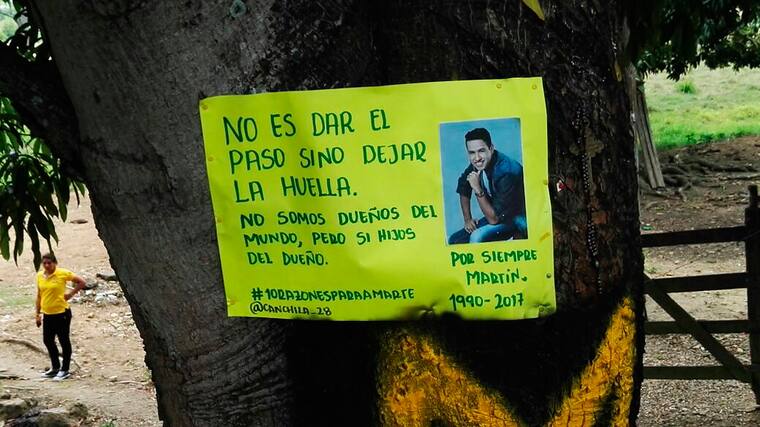 NO ES DAR EL
PASO SINO DEJAR
LA HUELLA.
NO SOMOS DUEÑOS DEL
MUNDO, PERO SI HIJOS
DEL DUEÑO.
#10RAZONESPARAAMARTE
@CANCHILA_28
POR SIEMPRE
MARTÍN.
1990-2017